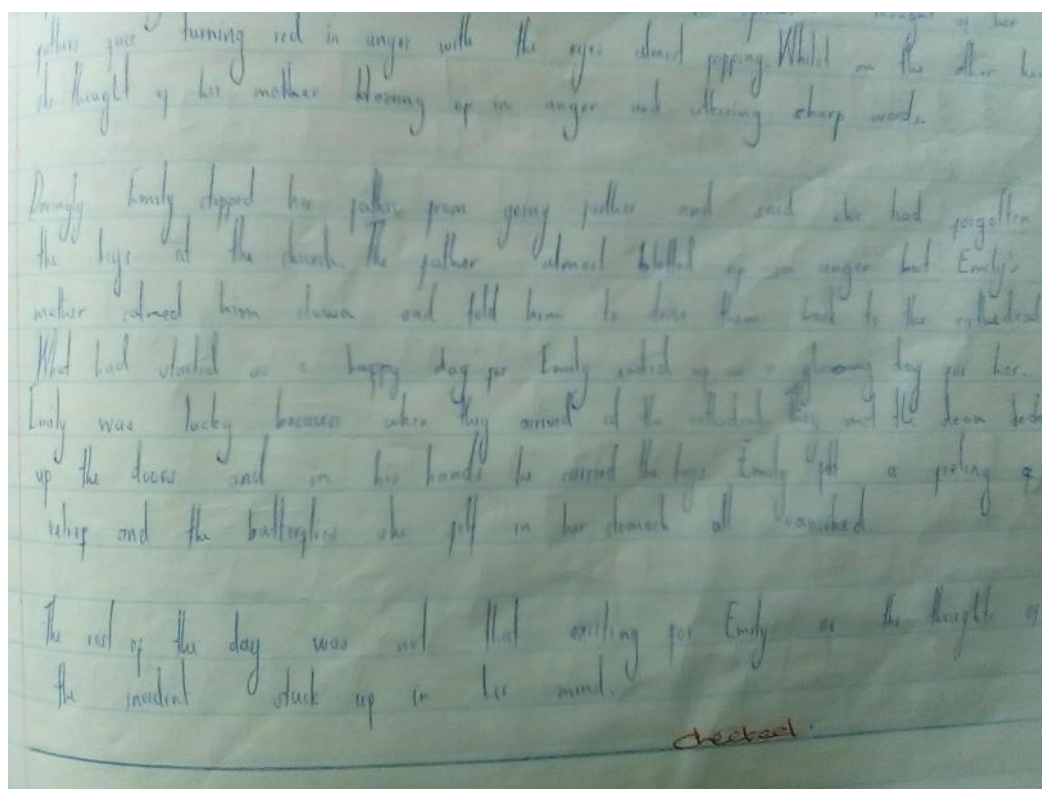 of her
fathers face turning red in anger with the eyes almost popping. Whilst on the other
she thought of his mother blowing up in anger and uttering sharp words.
Daringly Emily stopped her father from going further and said she had forgotten
the keys at the church. The father almost up in anger but Emily's
mother calmed him down and told him to drive them back to the cathedral
What had started as a happy day for Emily ended up as a gloomy day for her.
Emily was lucky because when they arrived at the cathedral they met the dean
up the doors and in his hands he carried the keys. Emily felt a feeling of
relief and the butterflies she felt in her stomach all vanished
The rest of the day was not that exciting for Emily as the thoughts of
the incident stuck up in her mind.
checked.